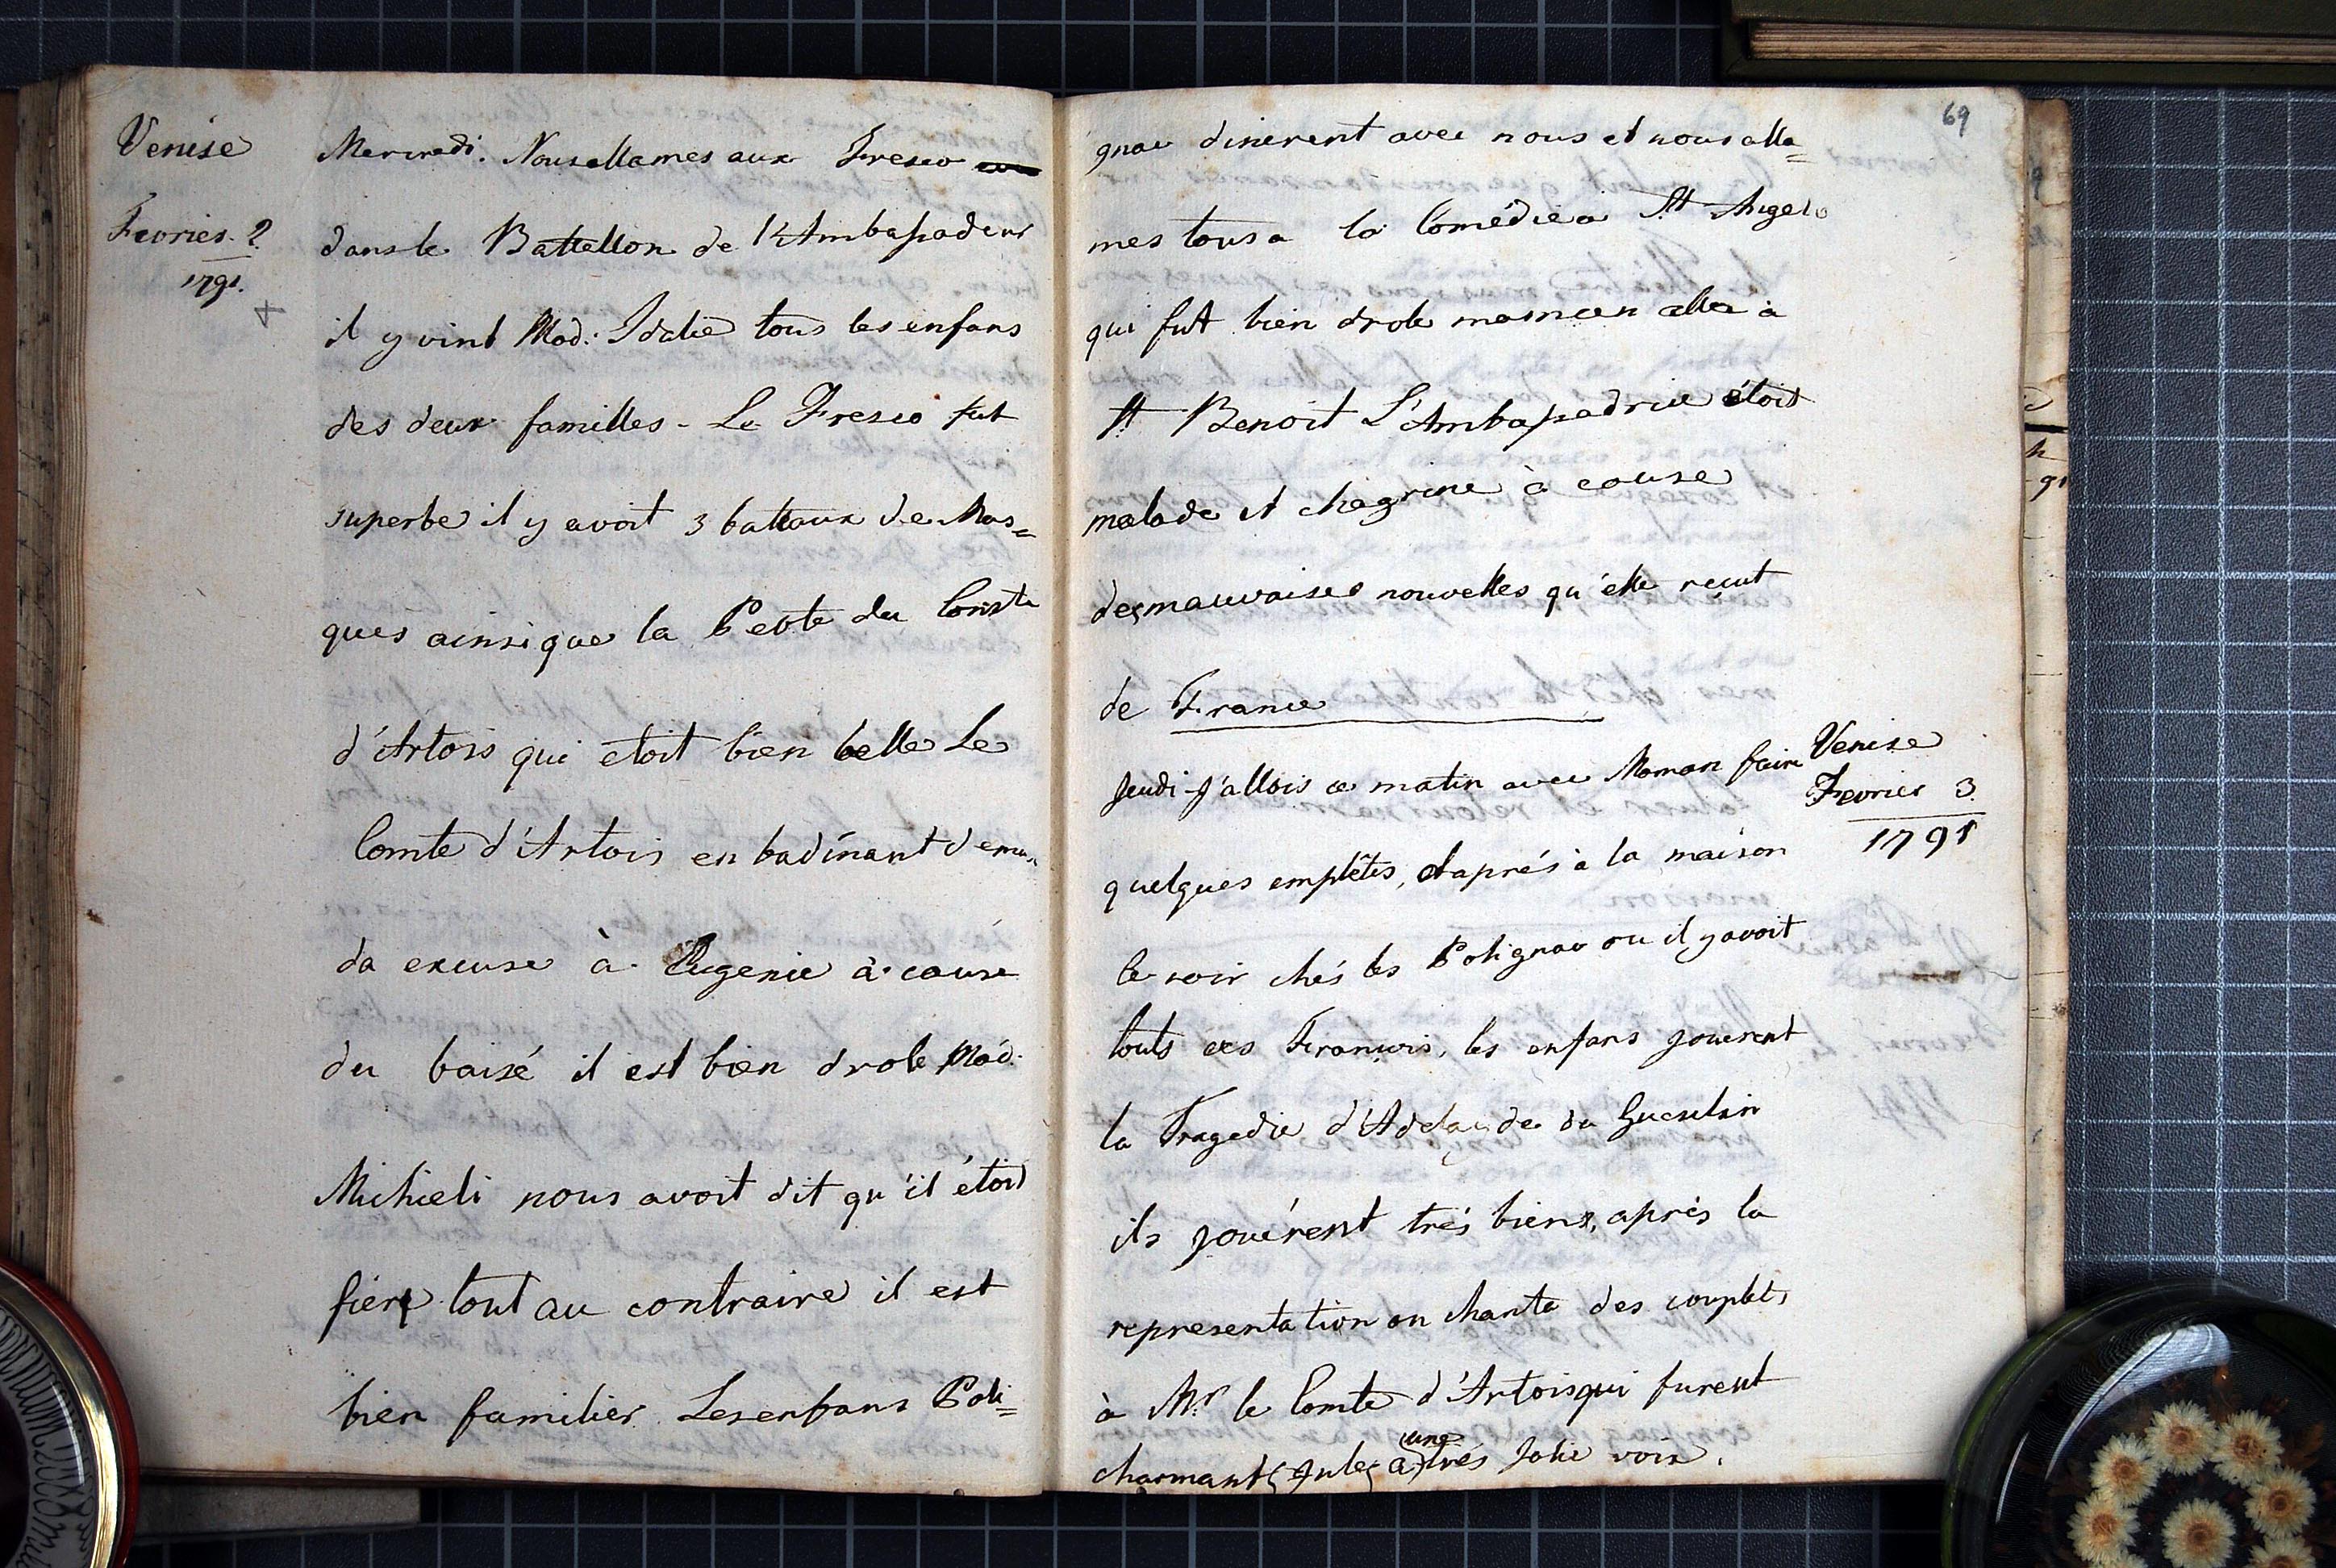 Venise
Fevrier. 2.
1791.
Mercredi. Nous allames aux Fresco
dans le Battellon de l'Ambassadeur
il y vint Mad: Idalie tous les enfans
des deux familles - Le Fresco fut
superbe il y avoit 3 battaux de Mas=
ques ainsi que la Peote du Comte
d'Artois qui etoit bien belle Le
Comte d'Artois en badinant deman
da excuse à Eugenie à cause
du baisé il est bien drole Mad:
Michieli nous avoit dit qu'il étoit
fier tout au contraire il est
bien familier Les enfans Poli=
69
gnac dinerent avec nous et nous alla=
mes tous a la Comédie a St Angelo
qui fut bien drole maman alla à
St Benoit L'Ambassadrice étoit
malade et chagrine à cause
des mauvaises nouvelles qu'elle reçut
de France
Venise
Fevrier 3.
1791
Jeudi j'allois ce matin avec Maman faire
quelques emplêtes, et aprés à la maison
le soir chés les Polignac ou il y avoit
touts ces François, les enfans jouerent
la Tragedie d'Adelaïde du Guesclin
ils jouérent trés bien, aprés la
representation on chanta des couplets
à Mr le Comte d'Artois qui furent
charmants Jules a une trés Jolie voix.